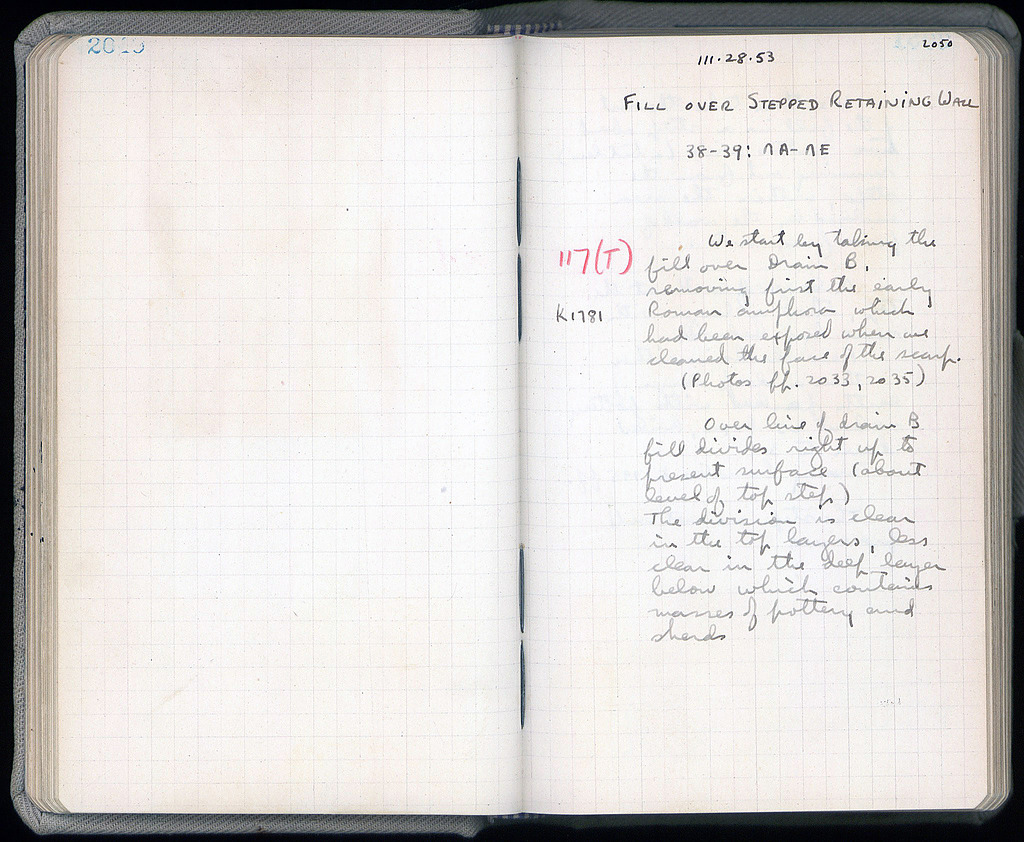 2050
111.28.53
FILL OVER STEPPED RETAINING WALL
38-39: ΛA-ΛE
117(T)
We start by taking the
fill over Drain B,
removing first the early
K1781
Roman amphora which
had been exposed when we
cleaned the face of the scarp.
(Photos pp. 2033, 2035)
Over line of drain B
fill divides right up to
present surface (about
level of top step)
The division is clear
in the top layers, less
clear in the deep layer
below which contains
masses of pottery and
sherds